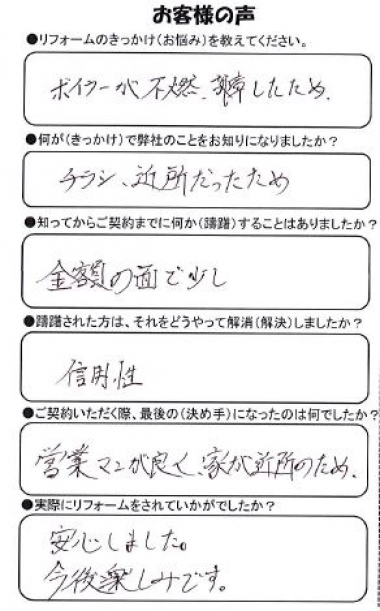 お客様の声
●リフォームのきっかけ(お悩み)を教えてください。
ボイラーが不燃、故障したため、
●何が(きっかけ)で弊社のことをお知りになりましたか？
チラシ、近所だったため
●知ってからご契約までに何か(躊躇)することはありましたか？
金額の面で少し
●躊躇された方は、それをどうやって解消(解決)しましたか？
信用性
●ご契約いただく際、最後の(決め手)になったのは何でしたか？
営業マンが良く、家が近所のため、
●実際にリフォームをされていかがでしたか？
安心しました。
今後楽しみです。